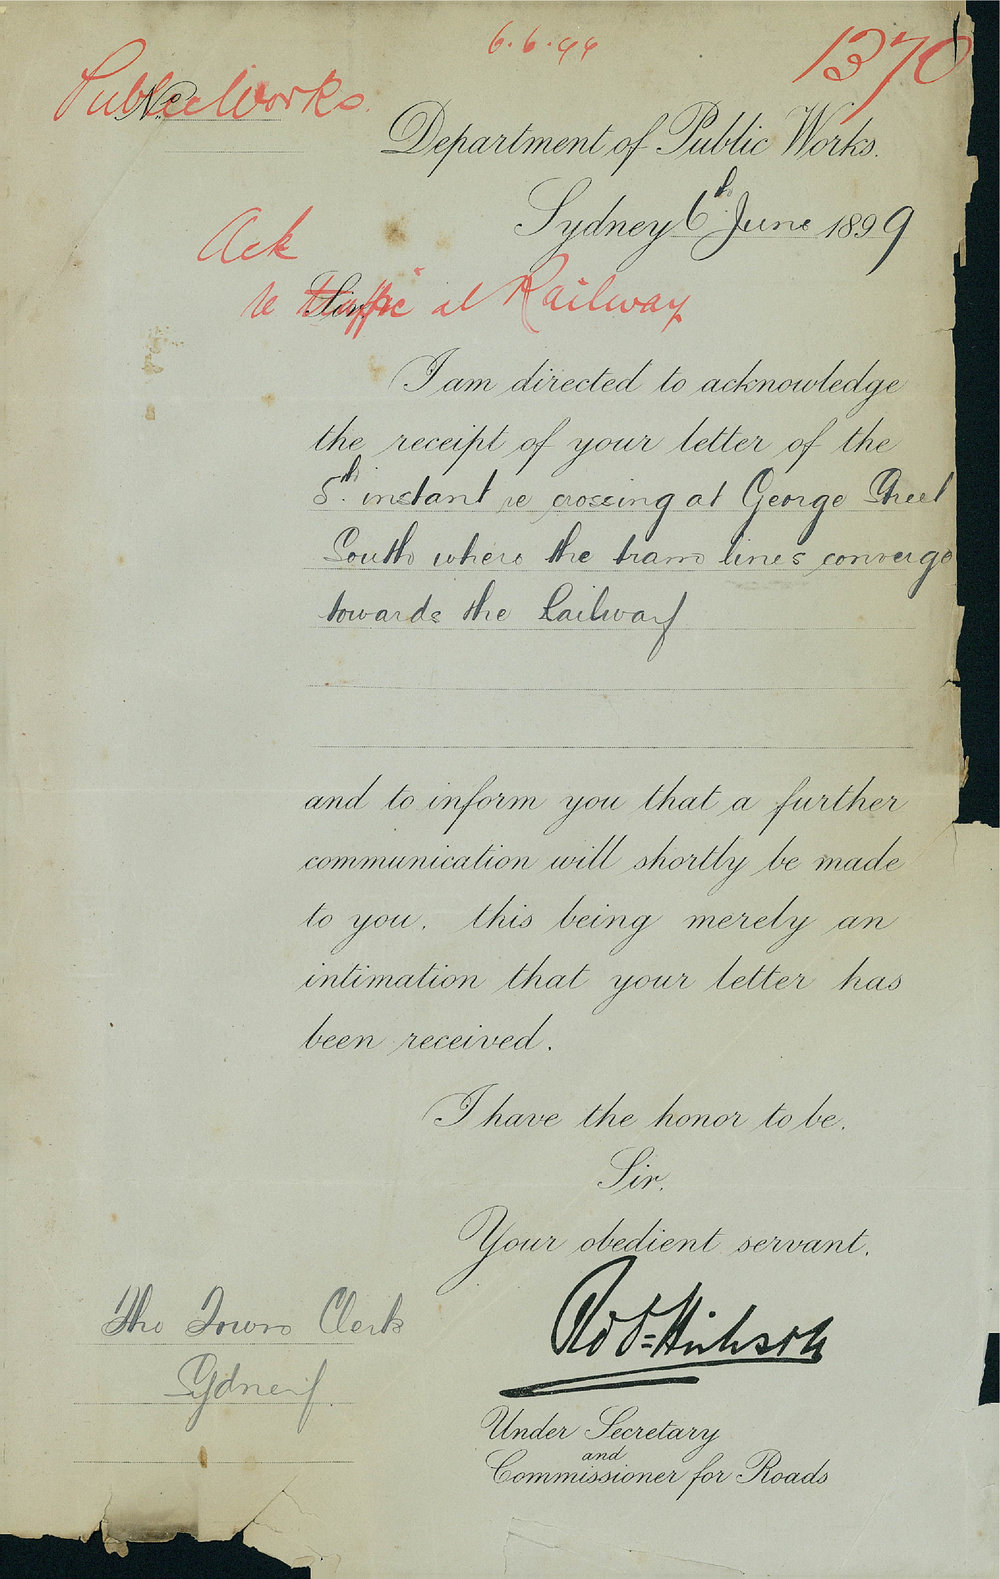 6.6.99
1370
Public Works.
No.
Department of Public Works.
Sydney 6th June 1899
Ack
re traffic at Railway
Sir,
I am directed to acknowledge
the receipt of your letter of the
5th. instant re crossing at George Street
South where the tram lines converge
towards the Railway
and to inform you that a further
communication will shortly be made
to you, this being merely an
intimation that your letter has
been received.
I have the honor to be,
Sir,
Your obedient servant,
Robt. Hickson
The Town Clerk
Sydney
Under Secretary
and
Commissioner for Roads